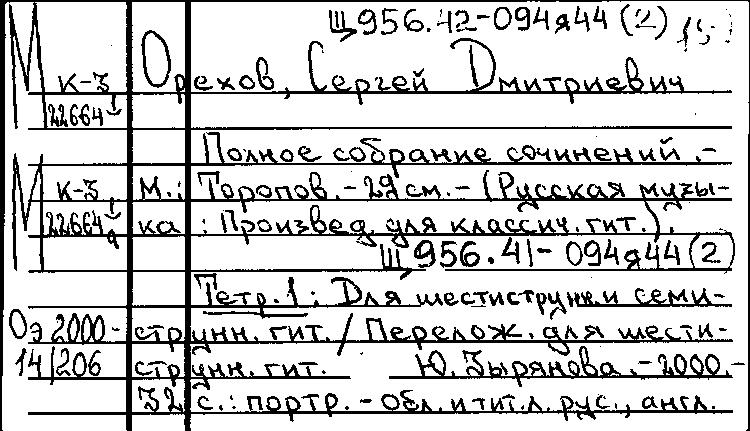 Щ956.42-094я44 (2)
М к-3 Орехов, Сергей Дмитриевич
22664
Полное собрание сочинений.-
М к-3, М.: Торопов.-29 см.-(Русская музы-
22664 ка : Произвед. для классич. гит.).
Щ 956.41- 094я44 (2)
Тетр. 1: Для шестиструнн. и семи-
Оэ 2000- струнн. гит. / Перелож. для шести-
14/206 струнн. гит. Ю. Зырянова.-2000.-
32 с.: портр.-Обл. и тит. л. рус., англ.